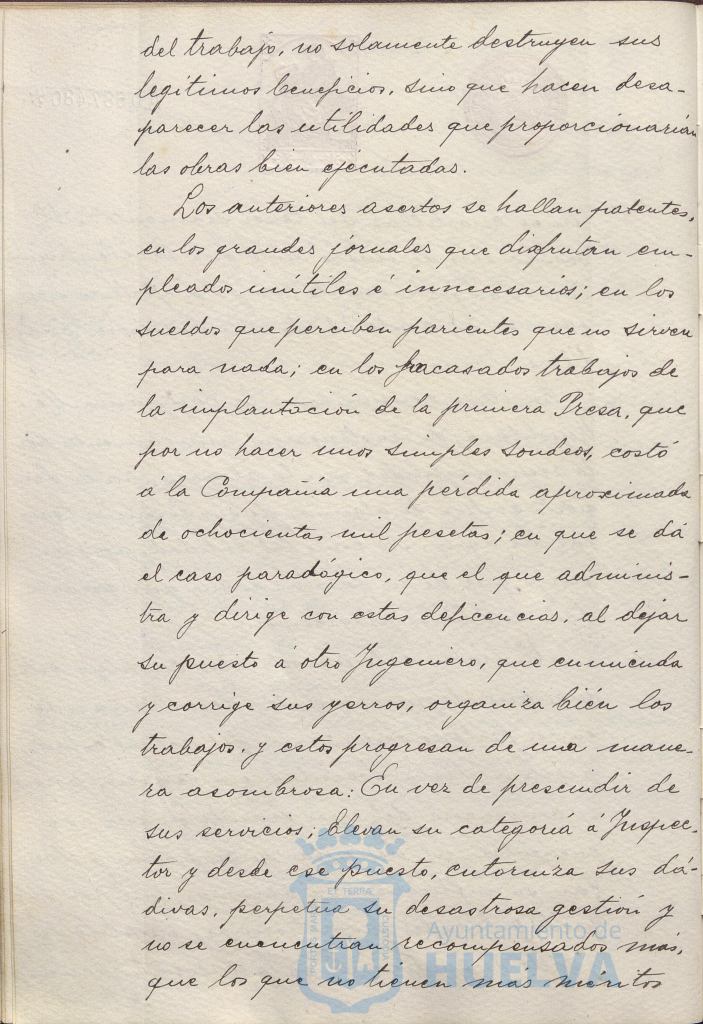 del trabajo, no solamente destruyen sus
legítimos beneficios, sino que hacen desa-
parecer las utilidades que proporcionarían
las obras bien ejecutadas.
Los anteriores asertos se hallan patentes,
en los grandes jornales que disfrutan em-
pleados inútiles é innecesarios; en los
sueldos que perciben parientes que no sirven
para nada; en los fracasados trabajos de
la implantación de la primera Presa, que
por no hacer unos simples sondeos, costó
á la Compañía una pérdida aproximada
de ochocientas mil pesetas; en que se dá
el caso paradógico, que el que adminis-
tra y dirige con estas deficencias, al dejar
su puesto á otro Ingeniero, que enmienda
y corrige sus yerros, organiza bién los
trabajos, y estos progresan de una mane-
ra asombrosa: En vez de prescindir de
sus servicios; Elevan su categoría á Inspec-
tor y desde ese puesto, sus dá-
divas, perpetua su desastrosa gestión y
no se encuentran recompensados más,
que los que no tienen más méritos
Ayuntamiento de
HUELVA